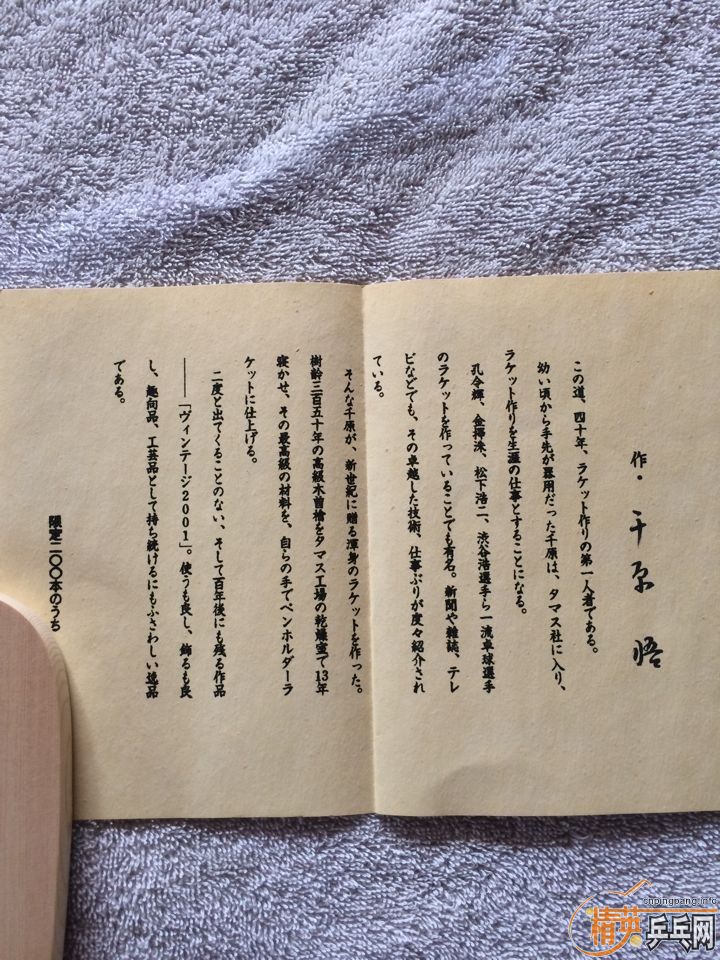 作・千原 悟
この道、四十年、ラケット作りの第一人者である。
幼い頃から手先が器用だった千原は、タマス社に入り、
ラケット作りを生涯の仕事とすることになる。
孔令輝、金擇洙、松下浩二、渋谷浩選手ら一流卓球選手
のラケットを作っていることでも有名。新聞や雑誌、テレ
ビなどでも、その卓越した技術、仕事ぶりが度々紹介され
ている。
そんな千原が、新世紀に贈る渾身のラケットを作った。
樹齢三百五十年の高級木曽檜をタマス工場の乾燥室で13年
寝かせ、その最高級の材料を、自らの手でペンホルダーラ
ケットに仕上げる。
二度と出てくることのない、そして百年後にも残る作品
――「ヴィンテージ2001」。使うも良し、飾るも良
し、趣向品、工芸品として持ち続けるにもふさわしい逸品
である。
限定二〇〇本のうち
chpingpang.info
精英乒乓网